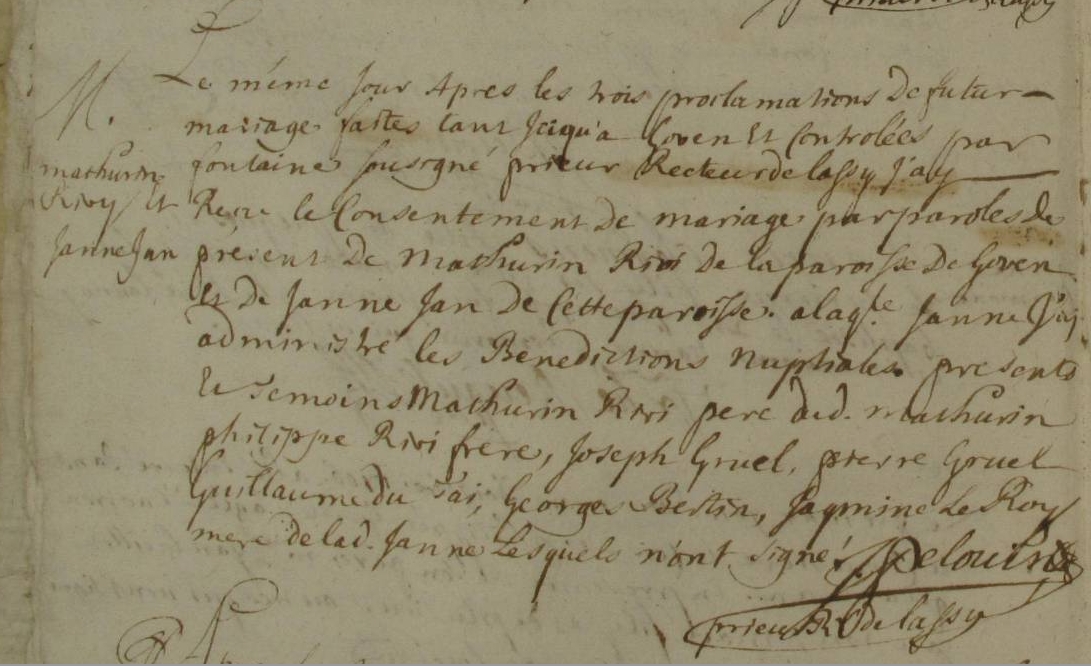 M.
mathurin
Rivy Et
Janne Jan
Le même Jour Apres les trois proclamations De futur
mariage faites tant Jci qu'a Goven Et Controlées par
fontaine sousigné prieur Recteur de lassy J'ay
Recu le Consentement de mariage par paroles de
présent De Mathurin Rivi De la paroisse De Goven
Et De Janne Jan De Cette paroisse. a laq.le Janne J'ai
administré les Benedictions Nuptiales. presents
Et Temoins Mathurin Rivi pere dud. mathurin
philippe Rivi frere, Joseph Gruel, pierre Gruel
Guillaume du Georges Bertin, Jaqmine Le Roy
mere de lad. Janne Lesquels n'ont signé.
prieur R. de lassy